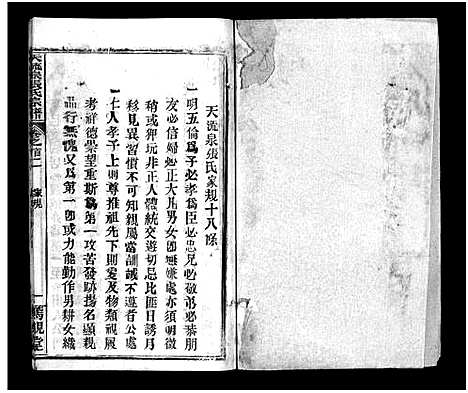 天流泉張氏家規十八條
一明五倫為子必孝為臣必忠兄必敬弟必恭朋
友必信婦必正大凡男女卽無嫌處亦須明徵
稍或狎玩非正人體統交遊切忌比匪日誘月
移見異習慣不可知親屬當訓誡不遵者公處
一人孝子上則尊推祖先下則愛及物類視履
考祥德崇望重斯為第一攻苦發跡揚名顯親
品行無愧又為第一卽或力能勤作男耕女織
天流泉張氏宗譜
卷之首二
家規
一